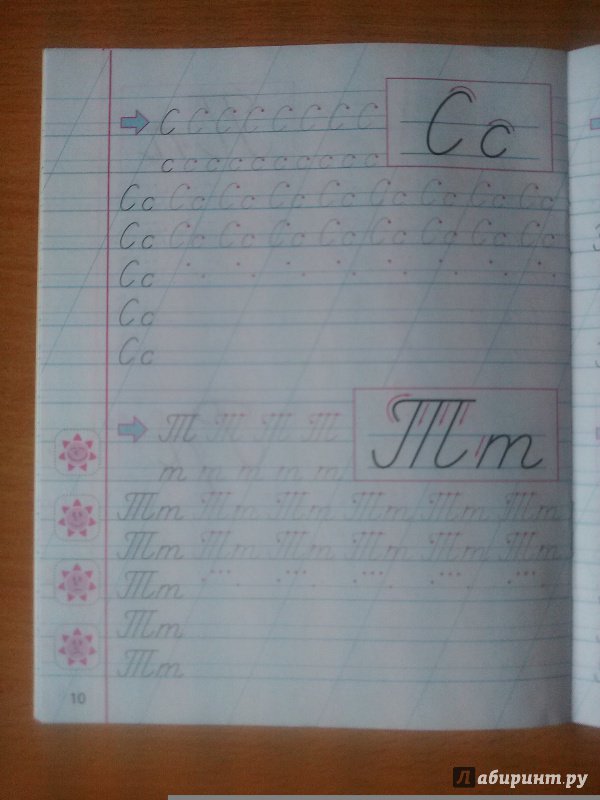 С С С С С С С С
Сс
с с с с с с с с с с
Сс Сс Сс Сс Сс Сс Сс Сс Сс
Сс Сс Сс Сс Сс Сс Сс Сс Сс
Сс
Сс
Сс
Т Т Т Т
Тт
т т т т т
Тт Тт Тт Тт Тт Тт
Тт Тт Тт Тт Тт Тт
Тт
Тт
Тт
10
Лабиринт.ру